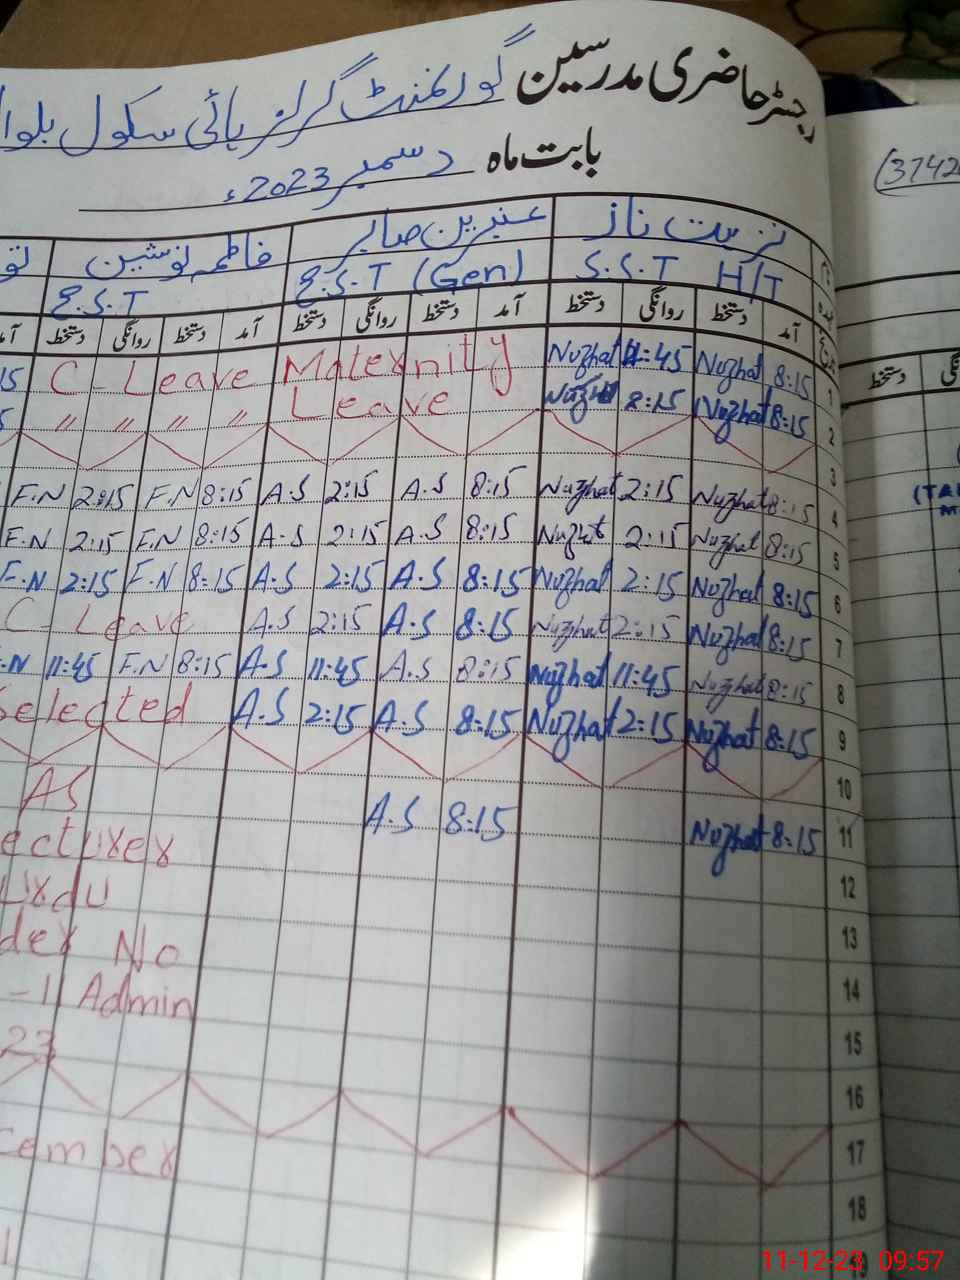 رجسٹر حاضری مدرسین گورنمنٹ گرلز ہائی سکول
بابت ماہ دسمبر 2023ء
نزہت ناز عنبرین صابر فاطمہ نوشین
S.S.T H/T E.S.T (Gen) E.S.T
آمد دستخط روانگی دستخط آمد دستخط روانگی دستخط آمد دستخط روانگی دستخط
1 8:15 Nuzhat 11:45 Nuzhat Maternity C-Leave
2 8:15 Nuzhat 8:15 Leave " " " "
3
4 8:15 Nuzhat 2:15 Nuzhat 8:15 A.S 2:15 A.S 8:15 F.N 2:15 F.N
5 8:15 Nuzhat 2:15 Nuzhat 8:15 A.S 2:15 A.S 8:15 F.N 2:15 F.N
6 8:15 Nuzhat 2:15 Nuzhat 8:15 A.S 2:15 A.S 8:15 F.N 2:15 F.N
7 8:15 Nuzhat 2:15 Nuzhat 8:15 A.S 2:15 A.S C-Leave
8 8:15 Nuzhat 11:45 Nuzhat 8:15 A.S 11:45 A.S 8:15 F.N 11:45
9 8:15 Nuzhat 2:15 Nuzhat 8:15 A.S 2:15 A.S Selected
10
AS
11 8:15 Nuzhat 8:15 A.S
ecturer
12
Urdu
13
der No
14
-1 Admin
15
23
16
17
cember
18
دستخط
11-12-23 09:57